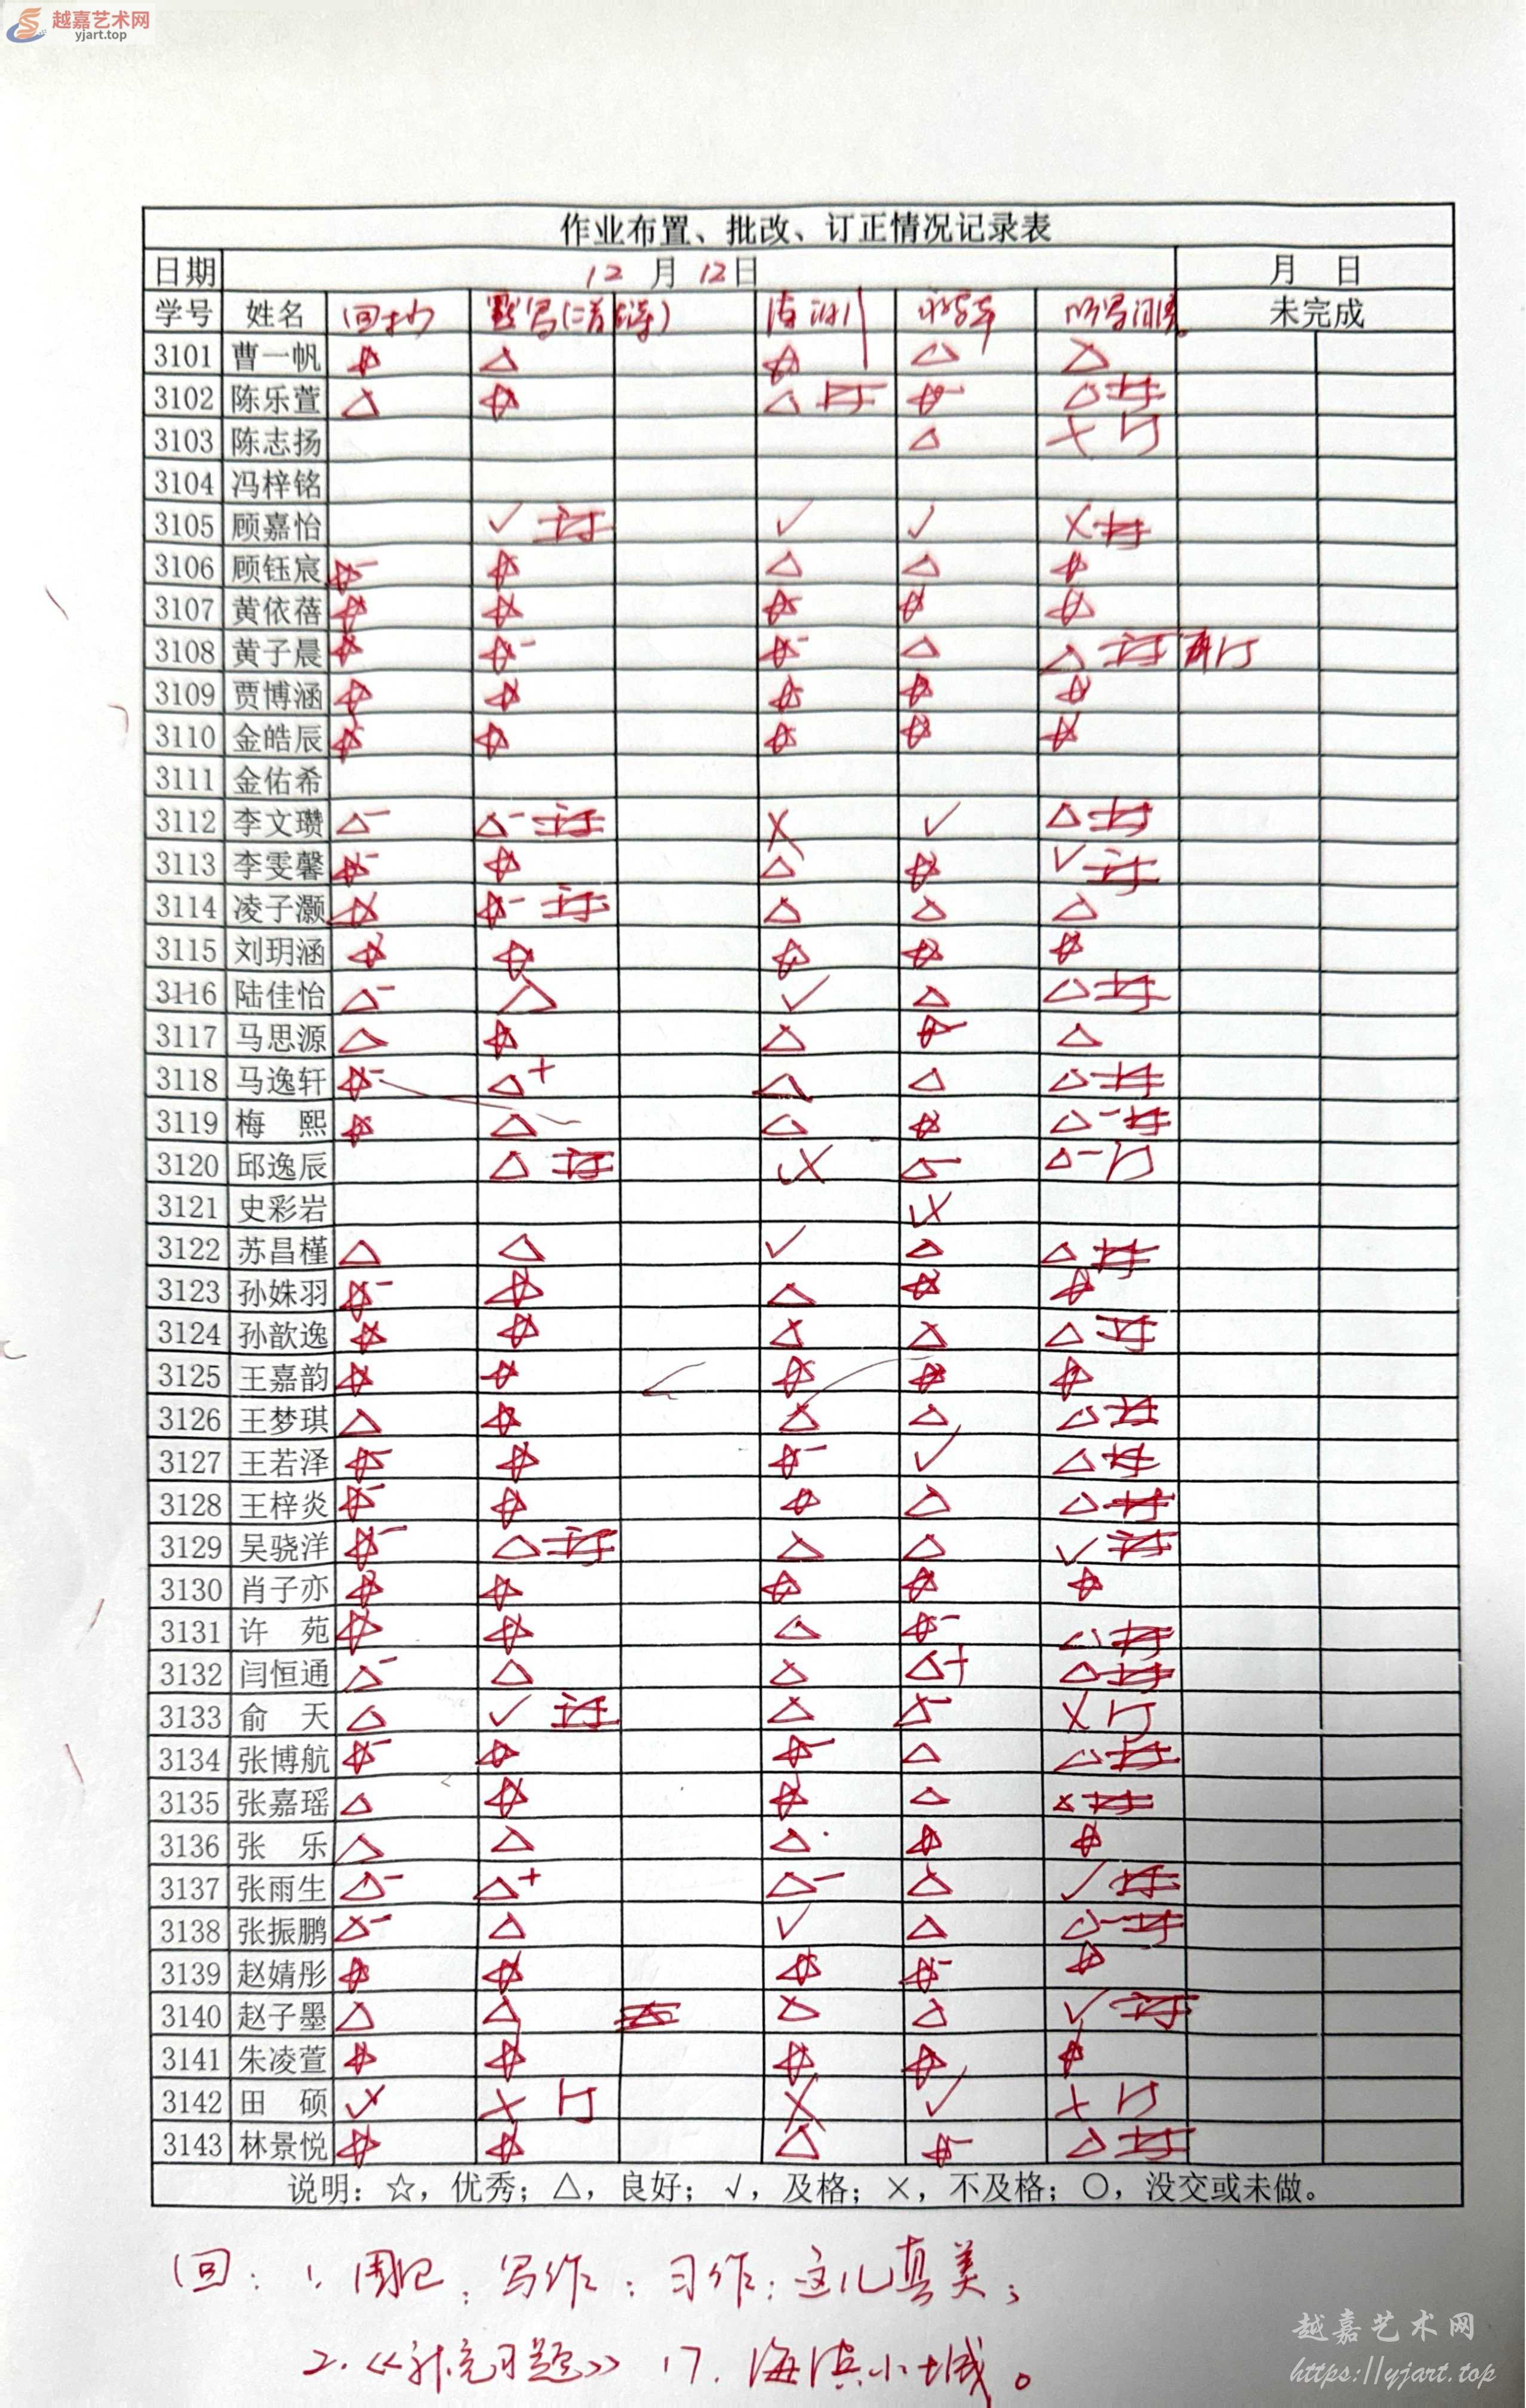 越嘉艺术网
yjart.top
作业布置、批改、订正情况记录表
日期 12 月 12 日 月 日
学号 姓名 回 默写(二首 未完成
3101 曹一帆 ☆ △ ☆ △ △
3102 陈乐萱 △ ☆ △ 订 ☆- △ 订
3103 陈志扬 △ × 订
3104 冯梓铭
3105 顾嘉怡 √ 订 √ √ × 订
3106 顾钰宸 ☆- ☆ △ △ ☆
3107 黄依蓓 ☆ ☆ ☆ ☆ ☆
3108 黄子晨 ☆ ☆- ☆- △ △ 订 再订
3109 贾博涵 ☆ ☆ ☆ ☆ ☆
3110 金皓辰 ☆ ☆ ☆ ☆ ☆
3111 金佑希
3112 李文瓒 △- △- 订 × √ △ 订
3113 李雯馨 ☆- ☆ △ ☆ √ 订
3114 凌子灏 ☆ ☆- 订 △ △ △
3115 刘玥涵 ☆ ☆ ☆ ☆ ☆
3116 陆佳怡 △- △ √ △ △ 订
3117 马思源 △ ☆ △ ☆- △
3118 马逸轩 ☆- △+ △ △ △ 订
3119 梅 熙 ☆ △ △ ☆ △- 订
3120 邱逸辰 △ 订 √× △- △- 订
3121 史彩岩 √×
3122 苏昌槿 △ △ √ △ △ 订
3123 孙姝羽 ☆- ☆ △ ☆ ☆
3124 孙歆逸 ☆ ☆ △ △ △ 订
3125 王嘉韵 ☆ ☆ ☆ ☆ ☆
3126 王梦琪 △ ☆ △ △ △ 订
3127 王若泽 ☆- ☆ ☆- √ △ 订
3128 王梓炎 ☆- ☆ ☆ △ △ 订
3129 吴骁洋 ☆- △ 订 △ △ √ 订
3130 肖子亦 ☆ ☆ ☆ ☆ ☆
3131 许 苑 ☆ ☆ △ ☆- △ 订
3132 闫恒通 △- △ △ △+ △ 订
3133 俞 天 △ √ 订 △ △- × 订
3134 张博航 ☆- ☆ ☆- △ △ 订
3135 张嘉瑶 △ ☆ ☆ △ × 订
3136 张 乐 △ △ △ ☆ ☆
3137 张雨生 △- △+ △- △ √ 订
3138 张振鹏 △- △ √ △ △- 订
3139 赵婧彤 ☆ ☆ ☆ ☆- ☆
3140 赵子墨 △ △ △ △ √ 订
3141 朱凌萱 ☆ ☆ ☆ ☆ ☆
3142 田 硕 √× × 订 × √ × 订
3143 林景悦 ☆ ☆ △ ☆- △ 订
说明：☆，优秀；△，良好；√，及格；×，不及格；○，没交或未做。
回：1. 周记：写作：习作：这儿真美；
2.《补充习题》17.海滨小城。
越嘉艺术网
https://yjart.top